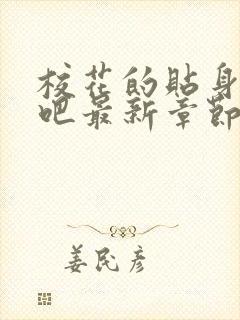 校花的贴身
吧最新章节
姜民彦